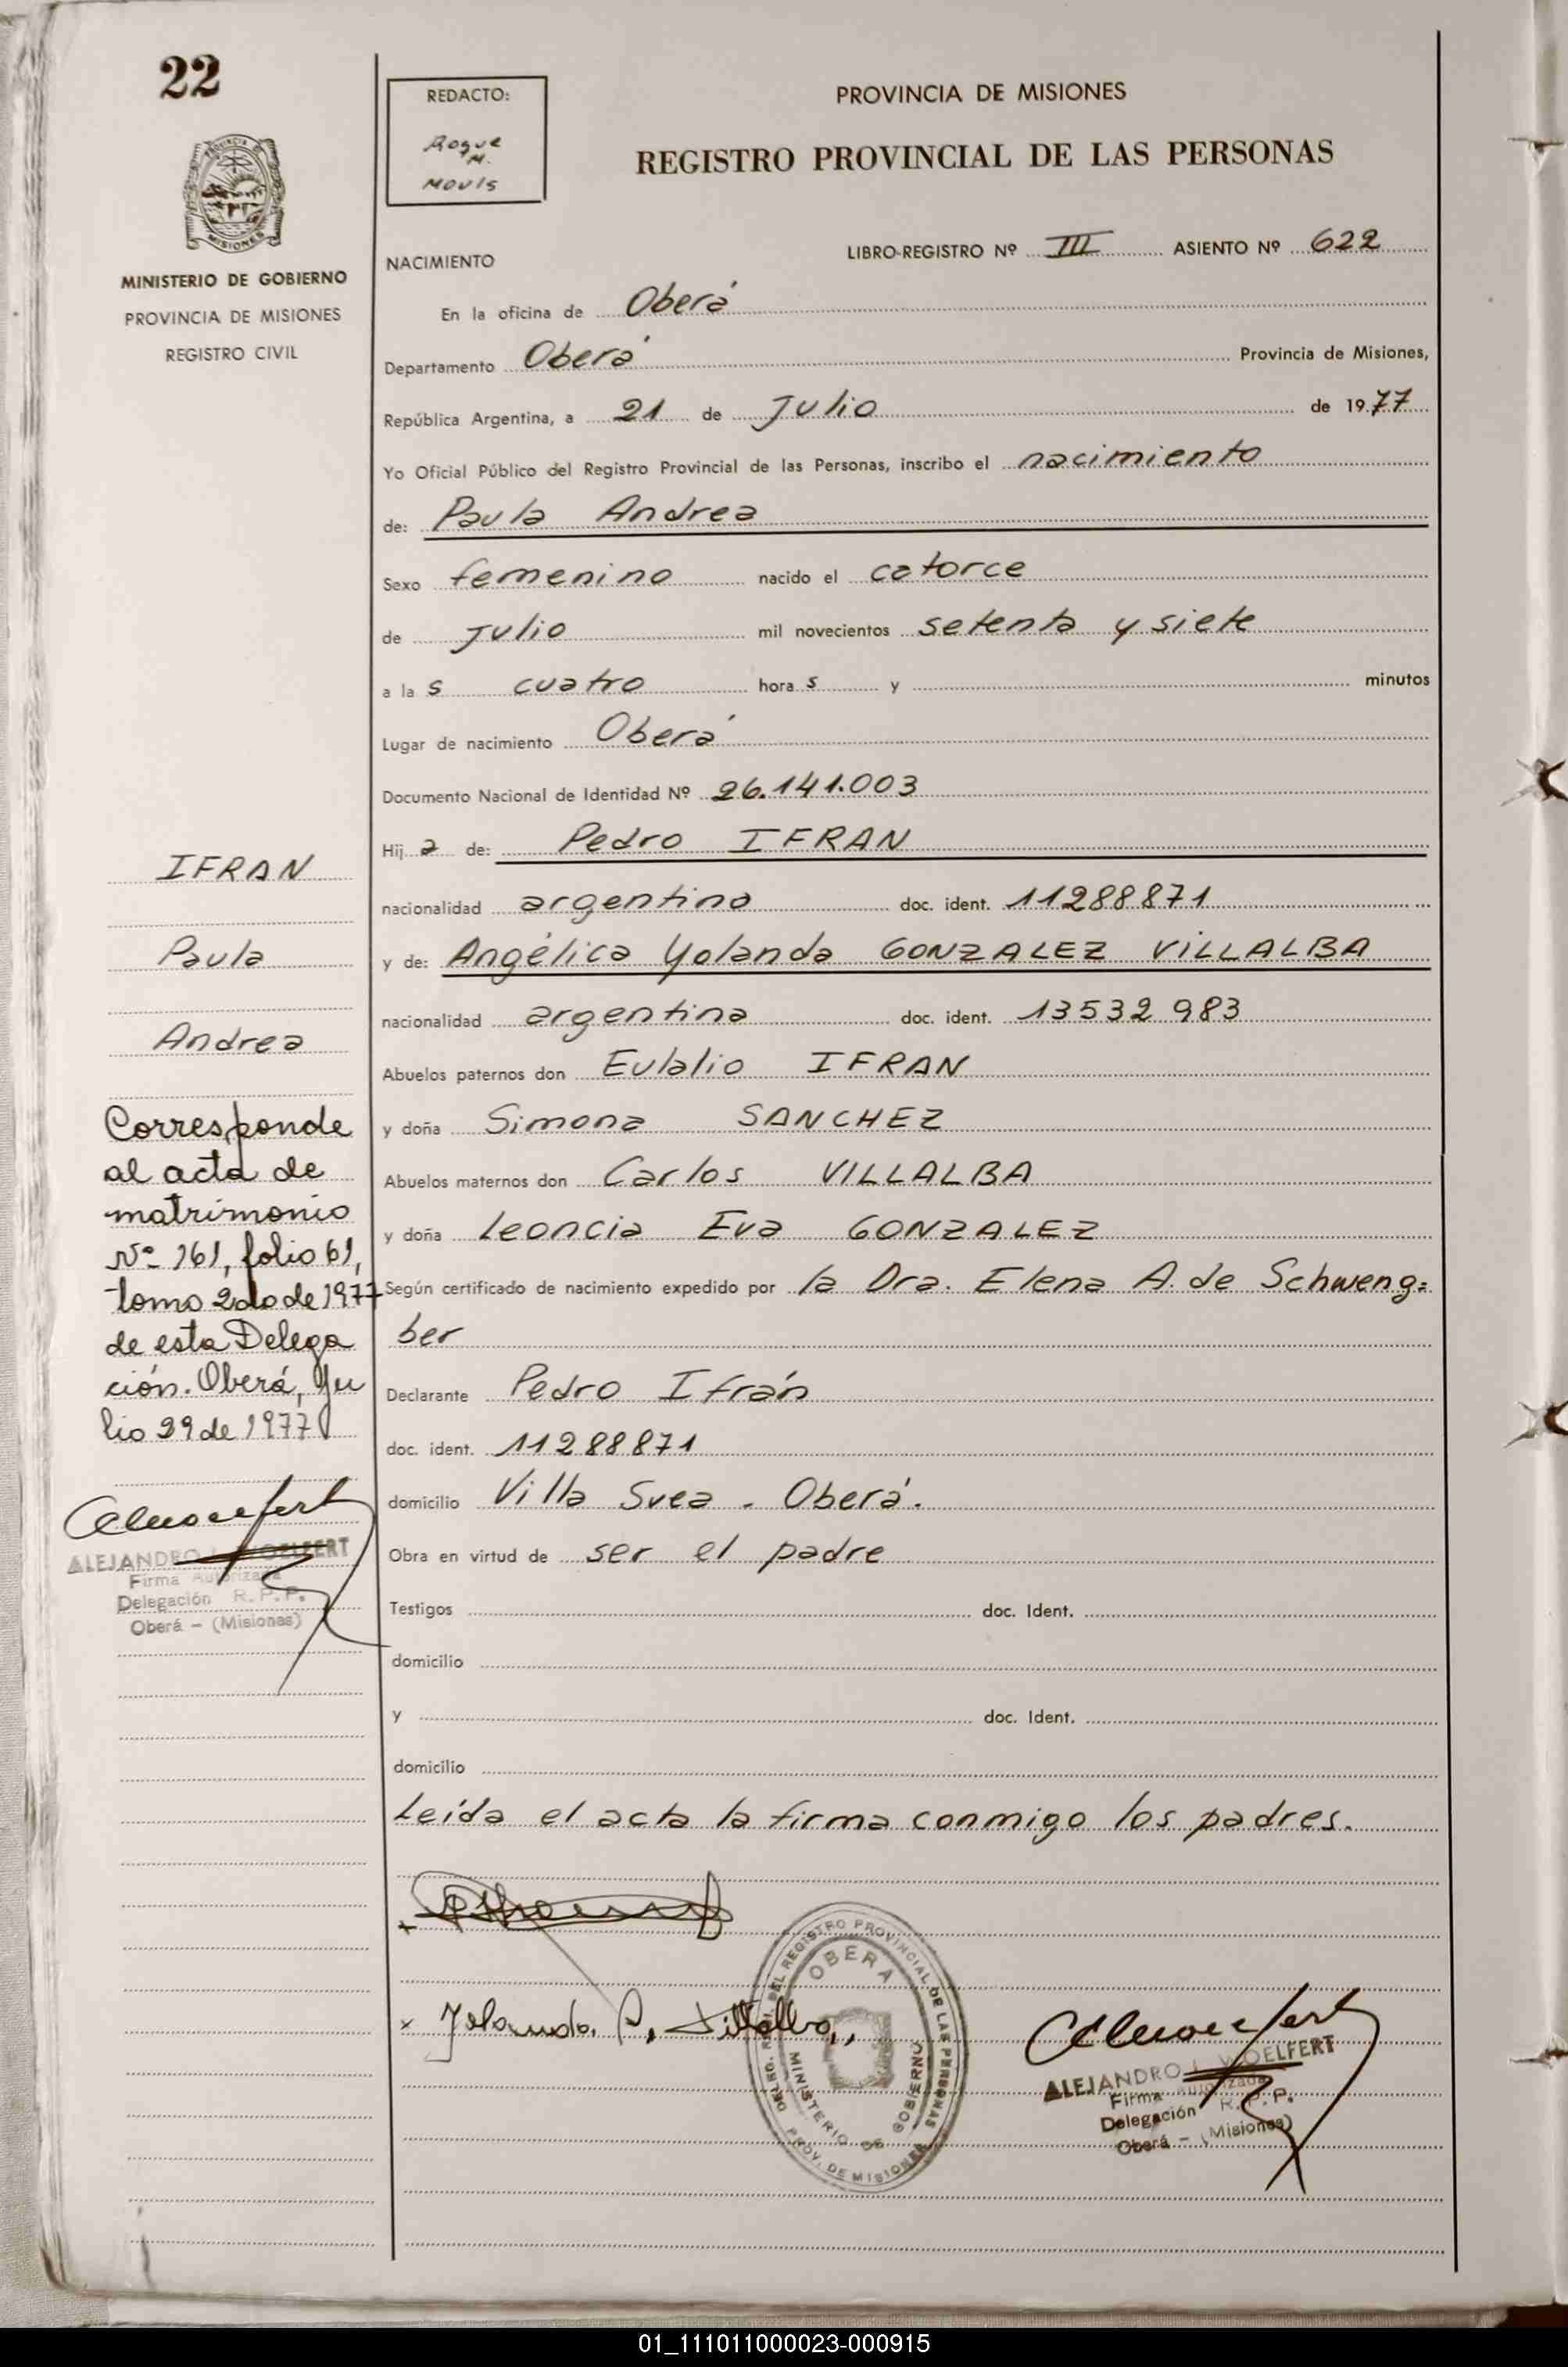 22
PROVINCIA DE
MISIONES
MINISTERIO DE GOBIERNO
PROVINCIA DE MISIONES
REGISTRO CIVIL
REDACTO:
Roque
M.
Mouls
PROVINCIA DE MISIONES
REGISTRO PROVINCIAL DE LAS PERSONAS
LIBRO-REGISTRO Nº III ASIENTO Nº 622
NACIMIENTO
En la oficina de Oberá
Departamento Oberá Provincia de Misiones,
República Argentina, a 21 de Julio de 1977
Yo Oficial Público del Registro Provincial de las Personas, inscribo el nacimiento
de: Paula Andrea
Sexo femenino nacido el catorce
de Julio mil novecientos setenta y siete
a las cuatro horas y minutos
Lugar de nacimiento Oberá
Documento Nacional de Identidad Nº 26.141.003
Hija de: Pedro IFRAN
nacionalidad argentina doc. ident. 11288871
y de: Angélica Yolanda GONZALEZ VILLALBA
nacionalidad argentina doc. ident. 13532983
Abuelos paternos don Eulalio IFRAN
y doña Simona SANCHEZ
Abuelos maternos don Carlos VILLALBA
y doña Leoncia Eva GONZALEZ
Según certificado de nacimiento expedido por la Dra. Elena A. de Schweng=
ber
Declarante Pedro Ifrán
doc. ident. 11288871
domicilio Villa Svea - Oberá.
Obra en virtud de ser el padre
Testigos doc. Ident.
domicilio
y doc. Ident.
domicilio
Leída el acta la firma conmigo los padres.
x Yolanda. A, Villalba,,
DELEG. DEL REGISTRO PROVINCIAL DE LAS PERSONAS
OBERA
MINISTERIO DE GOBIERNO
PROV. DE MISIONES
ALEJANDRO L. WOELFERT
Firma Autorizada
Delegación R. P. P.
Oberá - (Misiones)
IFRAN
Paula
Andrea
Corresponde
al acta de
matrimonio
Nº 161, folio 61,
tomo 2do de 1977
de esta Delega
ción. Oberá, Ju
lio 29 de 1977
ALEJANDRO L. WOELFERT
Firma Autorizada
Delegación R. P. P.
Oberá - (Misiones)
01_111011000023-000915